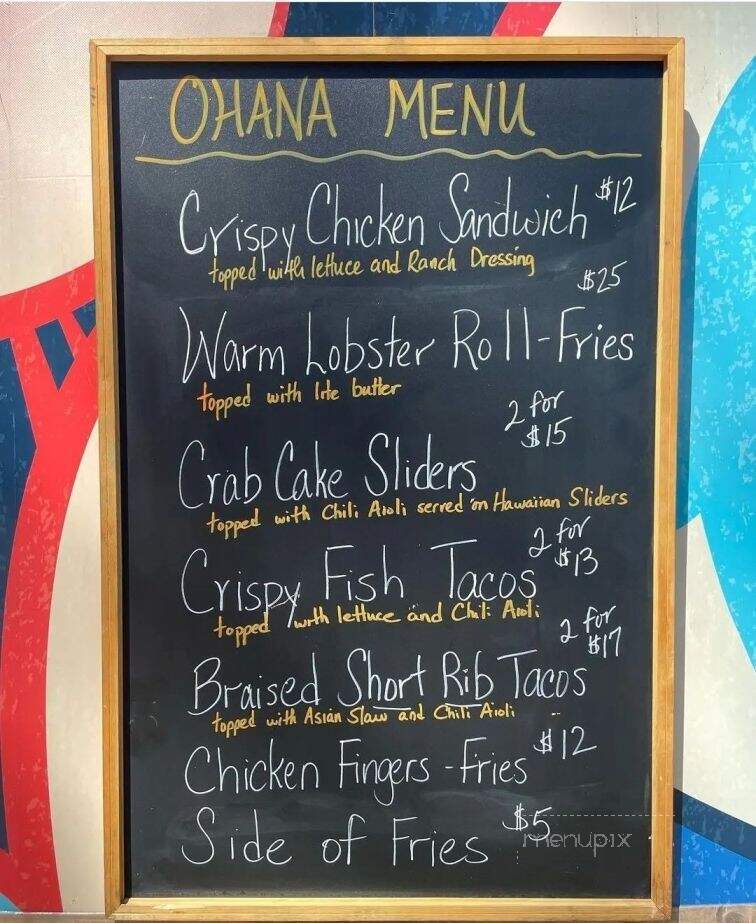 OHANA MENU
Crispy Chicken Sandwich $12
topped with lettuce and Ranch Dressing
$25
Warm Lobster Roll-Fries
topped with lite butter
2 for
$15
Crab Cake Sliders
topped with Chili Aioli served on Hawaiian Sliders
2 for
$13
Crispy Fish Tacos
topped with lettuce and Chili Aioli
2 for
$17
Braised Short Rib Tacos
topped with Asian Slaw and Chili Aioli
Chicken Fingers - Fries $12
Side of Fries $5
menupix